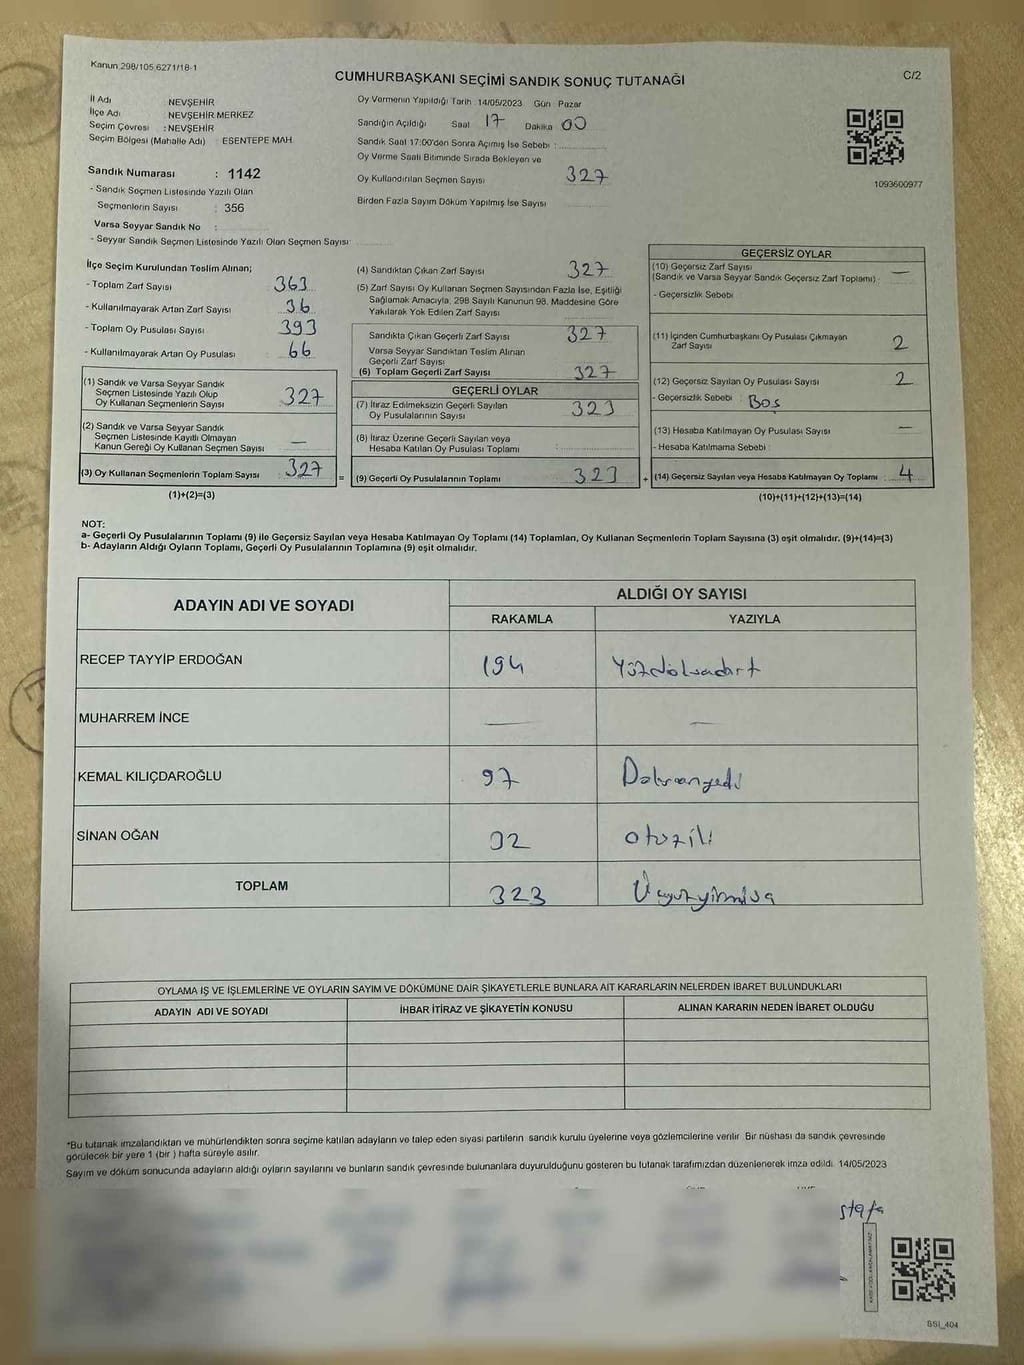 Kanun 298/105,6271/18-1
CUMHURBAŞKANI SEÇİMİ SANDIK SONUÇ TUTANAĞI
C/2
İl Adı : NEVŞEHİR
İlçe Adı : NEVŞEHİR MERKEZ
Seçim Çevresi : NEVŞEHİR
Seçim Bölgesi (Mahalle Adı) : ESENTEPE MAH.
Sandık Numarası : 1142
- Sandık Seçmen Listesinde Yazılı Olan
Seçmenlerin Sayısı : 356
Varsa Seyyar Sandık No :
- Seyyar Sandık Seçmen Listesinde Yazılı Olan Seçmen Sayısı:
Oy Vermenin Yapıldığı Tarih : 14/05/2023 Gün : Pazar
Sandığın Açıldığı Saat 17 Dakika 00
Sandık Saat 17:00'den Sonra Açımış İse Sebebi :
Oy Verme Saati Bitiminde Sırada Bekleyen ve
Oy Kullandırılan Seçmen Sayısı : 327
Birden Fazla Sayım Döküm Yapılmış İse Sayısı
1093600977
İlçe Seçim Kurulundan Teslim Alınan;
- Toplam Zarf Sayısı : 363
- Kullanılmayarak Artan Zarf Sayısı : 36
- Toplam Oy Pusulası Sayısı : 393
- Kullanılmayarak Artan Oy Pusulası : 66
(1) Sandık ve Varsa Seyyar Sandık
Seçmen Listesinde Yazılı Olup
Oy Kullanan Seçmenlerin Sayısı : 327
(2) Sandık ve Varsa Seyyar Sandık
Seçmen Listesinde Kayıtlı Olmayan
Kanun Gereği Oy Kullanan Seçmen Sayısı : —
(3) Oy Kullanan Seçmenlerin Toplam Sayısı : 327
(1)+(2)=(3)
(4) Sandıktan Çıkan Zarf Sayısı : 327
(5) Zarf Sayısı Oy Kullanan Seçmen Sayısından Fazla İse, Eşitliği
Sağlamak Amacıyla, 298 Sayılı Kanunun 98. Maddesine Göre
Yakılarak Yok Edilen Zarf Sayısı :
Sandıkta Çıkan Geçerli Zarf Sayısı : 327
Varsa Seyyar Sandıktan Teslim Alınan
Geçerli Zarf Sayısı :
(6) Toplam Geçerli Zarf Sayısı : 327
GEÇERLİ OYLAR
(7) İtiraz Edilmeksizin Geçerli Sayılan
Oy Pusulalarının Sayısı : 323
(8) İtiraz Üzerine Geçerli Sayılan veya
Hesaba Katılan Oy Pusulası Toplamı :
= (9) Geçerli Oy Pusulalarının Toplamı : 323
GEÇERSİZ OYLAR
(10) Geçersiz Zarf Sayısı : —
(Sandık ve Varsa Seyyar Sandık Geçersiz Zarf Toplamı)
- Geçersizlik Sebebi
(11) İçinden Cumhurbaşkanı Oy Pusulası Çıkmayan
Zarf Sayısı 2
(12) Geçersiz Sayılan Oy Pusulası Sayısı 2
- Geçersizlik Sebebi : Boş
(13) Hesaba Katılmayan Oy Pusulası Sayısı —
- Hesaba Katılmama Sebebi :
+ (14) Geçersiz Sayılan veya Hesaba Katılmayan Oy Toplamı : 4
(10)+(11)+(12)+(13)=(14)
NOT:
a- Geçerli Oy Pusulalarının Toplamı (9) ile Geçersiz Sayılan veya Hesaba Katılmayan Oy Toplamı (14) Toplamları, Oy Kullanan Seçmenlerin Toplam Sayısına (3) eşit olmalıdır. (9)+(14)=(3)
b- Adayların Aldığı Oyların Toplamı, Geçerli Oy Pusulalarının Toplamına (9) eşit olmalıdır.
ADAYIN ADI VE SOYADI
ALDIĞI OY SAYISI
RAKAMLA YAZIYLA
RECEP TAYYİP ERDOĞAN 194 Yüzdoksadört
MUHARREM İNCE — —
KEMAL KILIÇDAROĞLU 97 Doksanyedi
SİNAN OĞAN 32 otuziki
TOPLAM 323 Üçyüzyirmiüç
OYLAMA İŞ VE İŞLEMLERİNE VE OYLARIN SAYIM VE DÖKÜMÜNE DAİR ŞİKAYETLERLE BUNLARA AİT KARARLARIN NELERDEN İBARET BULUNDUKLARI
ADAYIN ADI VE SOYADI İHBAR İTİRAZ VE ŞİKAYETİN KONUSU ALINAN KARARIN NEDEN İBARET OLDUĞU
*Bu tutanak imzalandıktan ve mühürlendikten sonra seçime katılan adayların ve talep eden siyasi partilerin sandık kurulu üyelerine veya gözlemcilerine verilir. Bir nüshası da sandık çevresinde
görülecek bir yere 1 (bir ) hafta süreyle asılır.
Sayım ve döküm sonucunda adayların aldığı oyların sayılarını ve bunların sandık çevresinde bulunanlara duyurulduğunu gösteren bu tutanak tarafımızdan düzenlenerek imza edildi. 14/05/2023
stafa
BSI_404